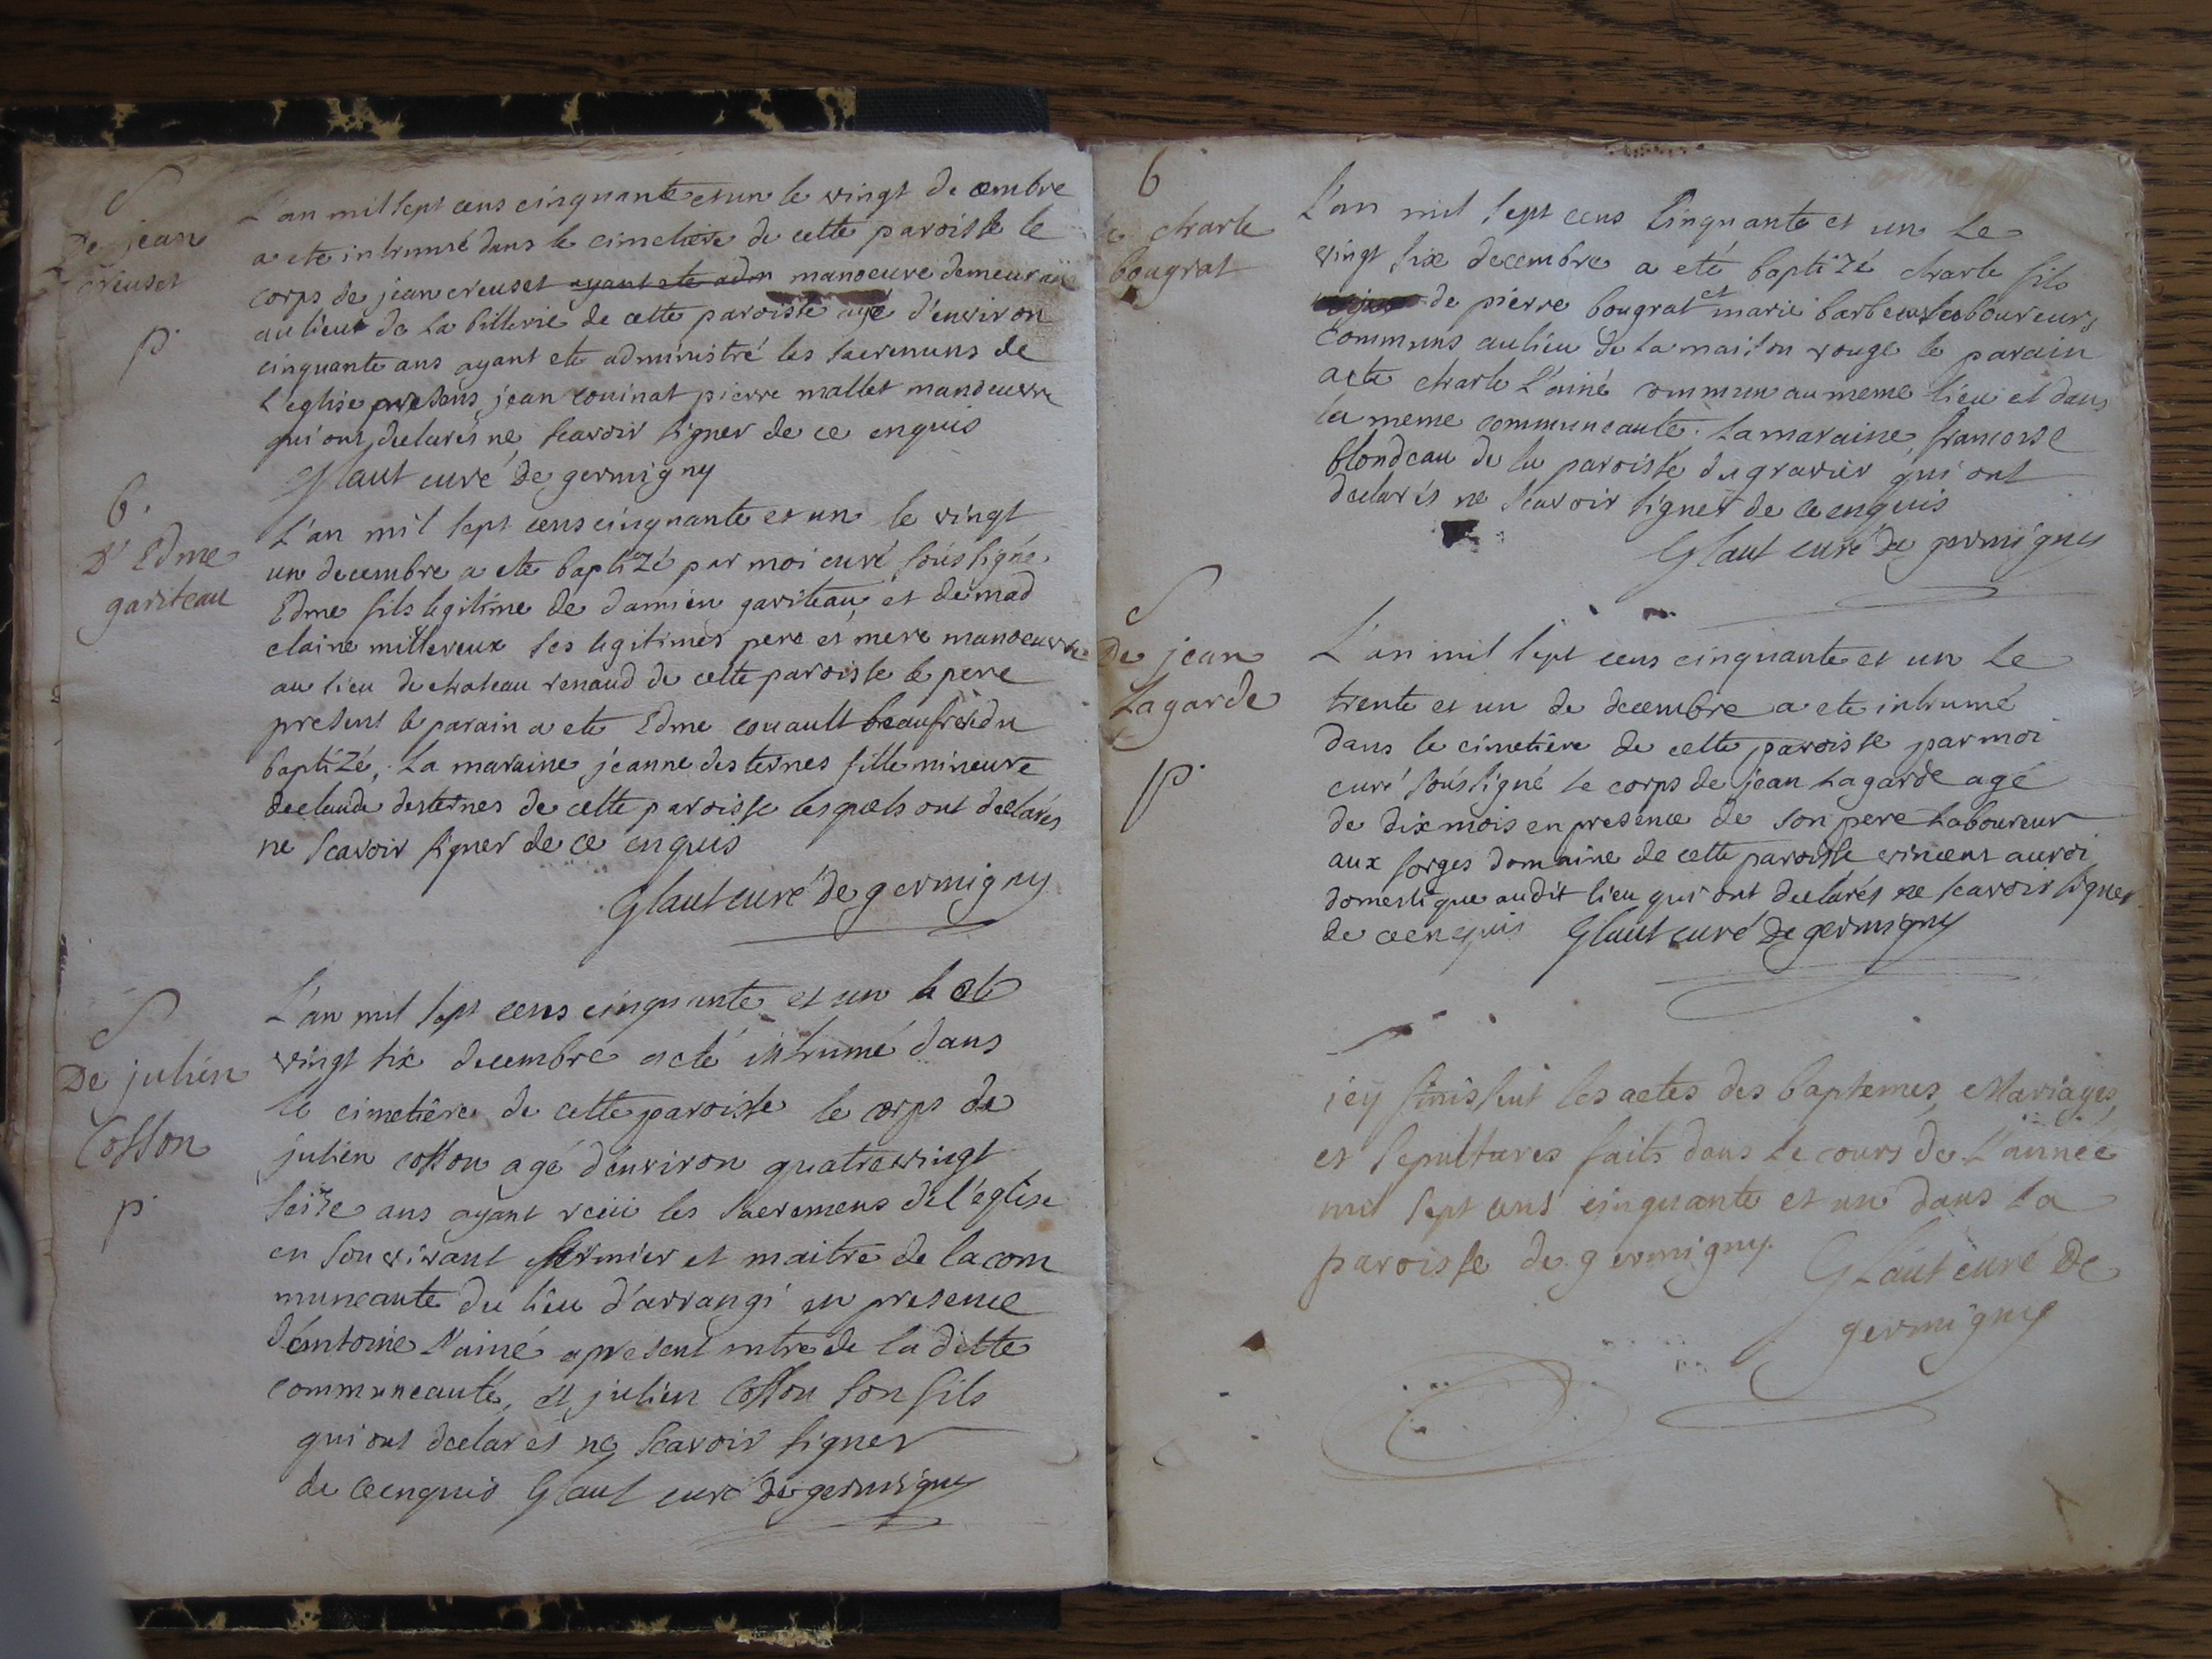 S
De jean
creuset
p.
L'an mil sept cens cinquante et un le vingt decembre
a ete inhumé dans le cimetiere de cette paroisse le
corps de jean creuset ayant ete adm manoeuvre demeurant
au lieu de la billerie de cette paroisse agé d'environ
cinquante ans ayant ete administré les sacremens de
L'eglise presens jean couinat pierre mallet manoeuvre
qui ont declarés ne scavoir signer de ce enquis
Glaut curé de germigny
b.
D'Edme
gariteau
L'an mil sept cens cinquante et un le vingt
un decembre a ete baptizé par moi curé soussigné
Edme fils legitime de damien gariteau et de mad
elaine millereux ses legitimes pere et mere manoeuvre
au lieu de chateau renaud de cette paroisse le pere
present le parain a ete Edme couault beaufrere du
baptizé, La maraine jeanne desternes fille mineure
de claude desternes de cette paroisse lesquels ont declarés
ne scavoir signer de ce enquis
Glaut curé de germigny
S
De julien
Cosson
p.
L'an mil sept cens cinquante et un le
vingt six decembre a eté inhumé dans
le cimetiére de cette paroisse le corps de
julien cosson agé d'environ quatrevingt
seize ans ayant recu les sacremens de l'eglise
en son vivant fermier et maitre de la com
muneauté du lieu d'arrangi en presence
d'antoine l'ainé apresent mtre de la ditte
communeauté, et julien Cosson son fils
qui ont declarés ne scavoir signer
de ce enquis Glaut curé de germigny
b
de charle
bougrat
L'an mil sept cens Cinquante et un Le
vingt six decembre a eté baptizé charle fils
de pierre bougrat et marie barbeus laboureurs
communs au lieu de la maison rouge le parain
a ete charle L'ainé commun au meme lieu et dans
la meme communeauté. La maraine francoise
blondeau de la paroisse du gravier qui ont
declarés ne scavoir signer de ce enquis
Glaut curé de germigny
S
De jean
Lagarde
p.
L'an mil sept cens cinquante et un Le
trente et un de decembre a ete inhumé
dans le cimetière de cette paroisse par moi
curé soussigné le corps de jean Lagarde agé
de dix mois en presence de son pere Laboureur
aux forges domaine de cette paroisse vincent auroi
domestique audit lieu qui ont declarés ne scavoir signer
de ce enquis Glaut curé De germigny
icy finissent les actes des baptemes, Mariages,
et sepultures faits dans le cours de L'année
mil sept cens cinquante et un dans La
paroisse de germigny. Glaut curé De
germigny